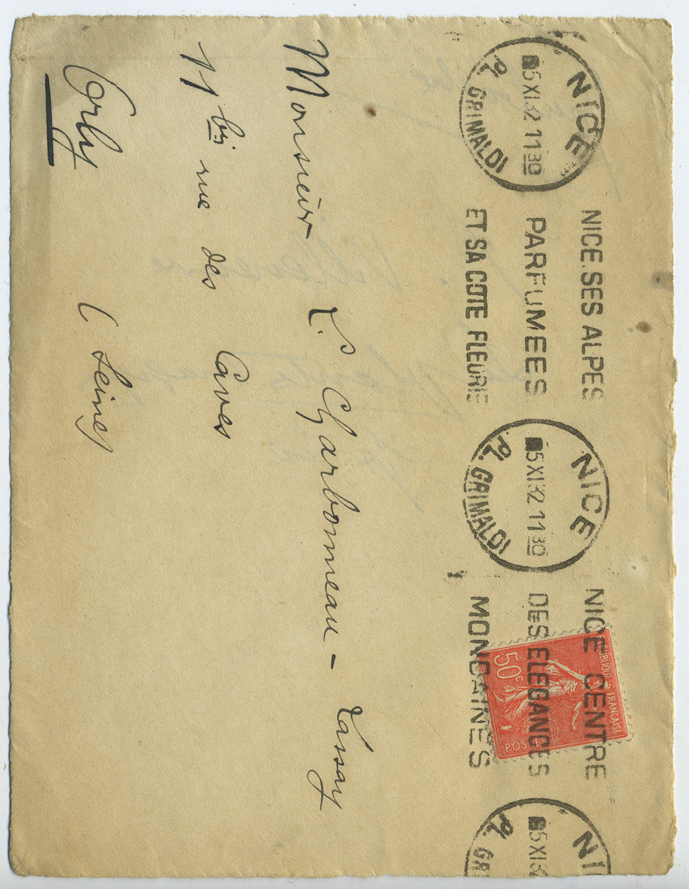 NICE
5 XI 32 11 30
PL. GRIMALDI
NICE. SES ALPES
PARFUMEES
ET SA COTE FLEURIE
NICE
5 XI 32 11 30
PL. GRIMALDI
NICE CENTRE
DES ELEGANCES
MONDAINES
NI
5 XI 3
PL. GR
FRANÇAISE
50c
POS
Monsieur L. Charbonneau - Lassay
11 bis rue des Caves
Orly (Seine)